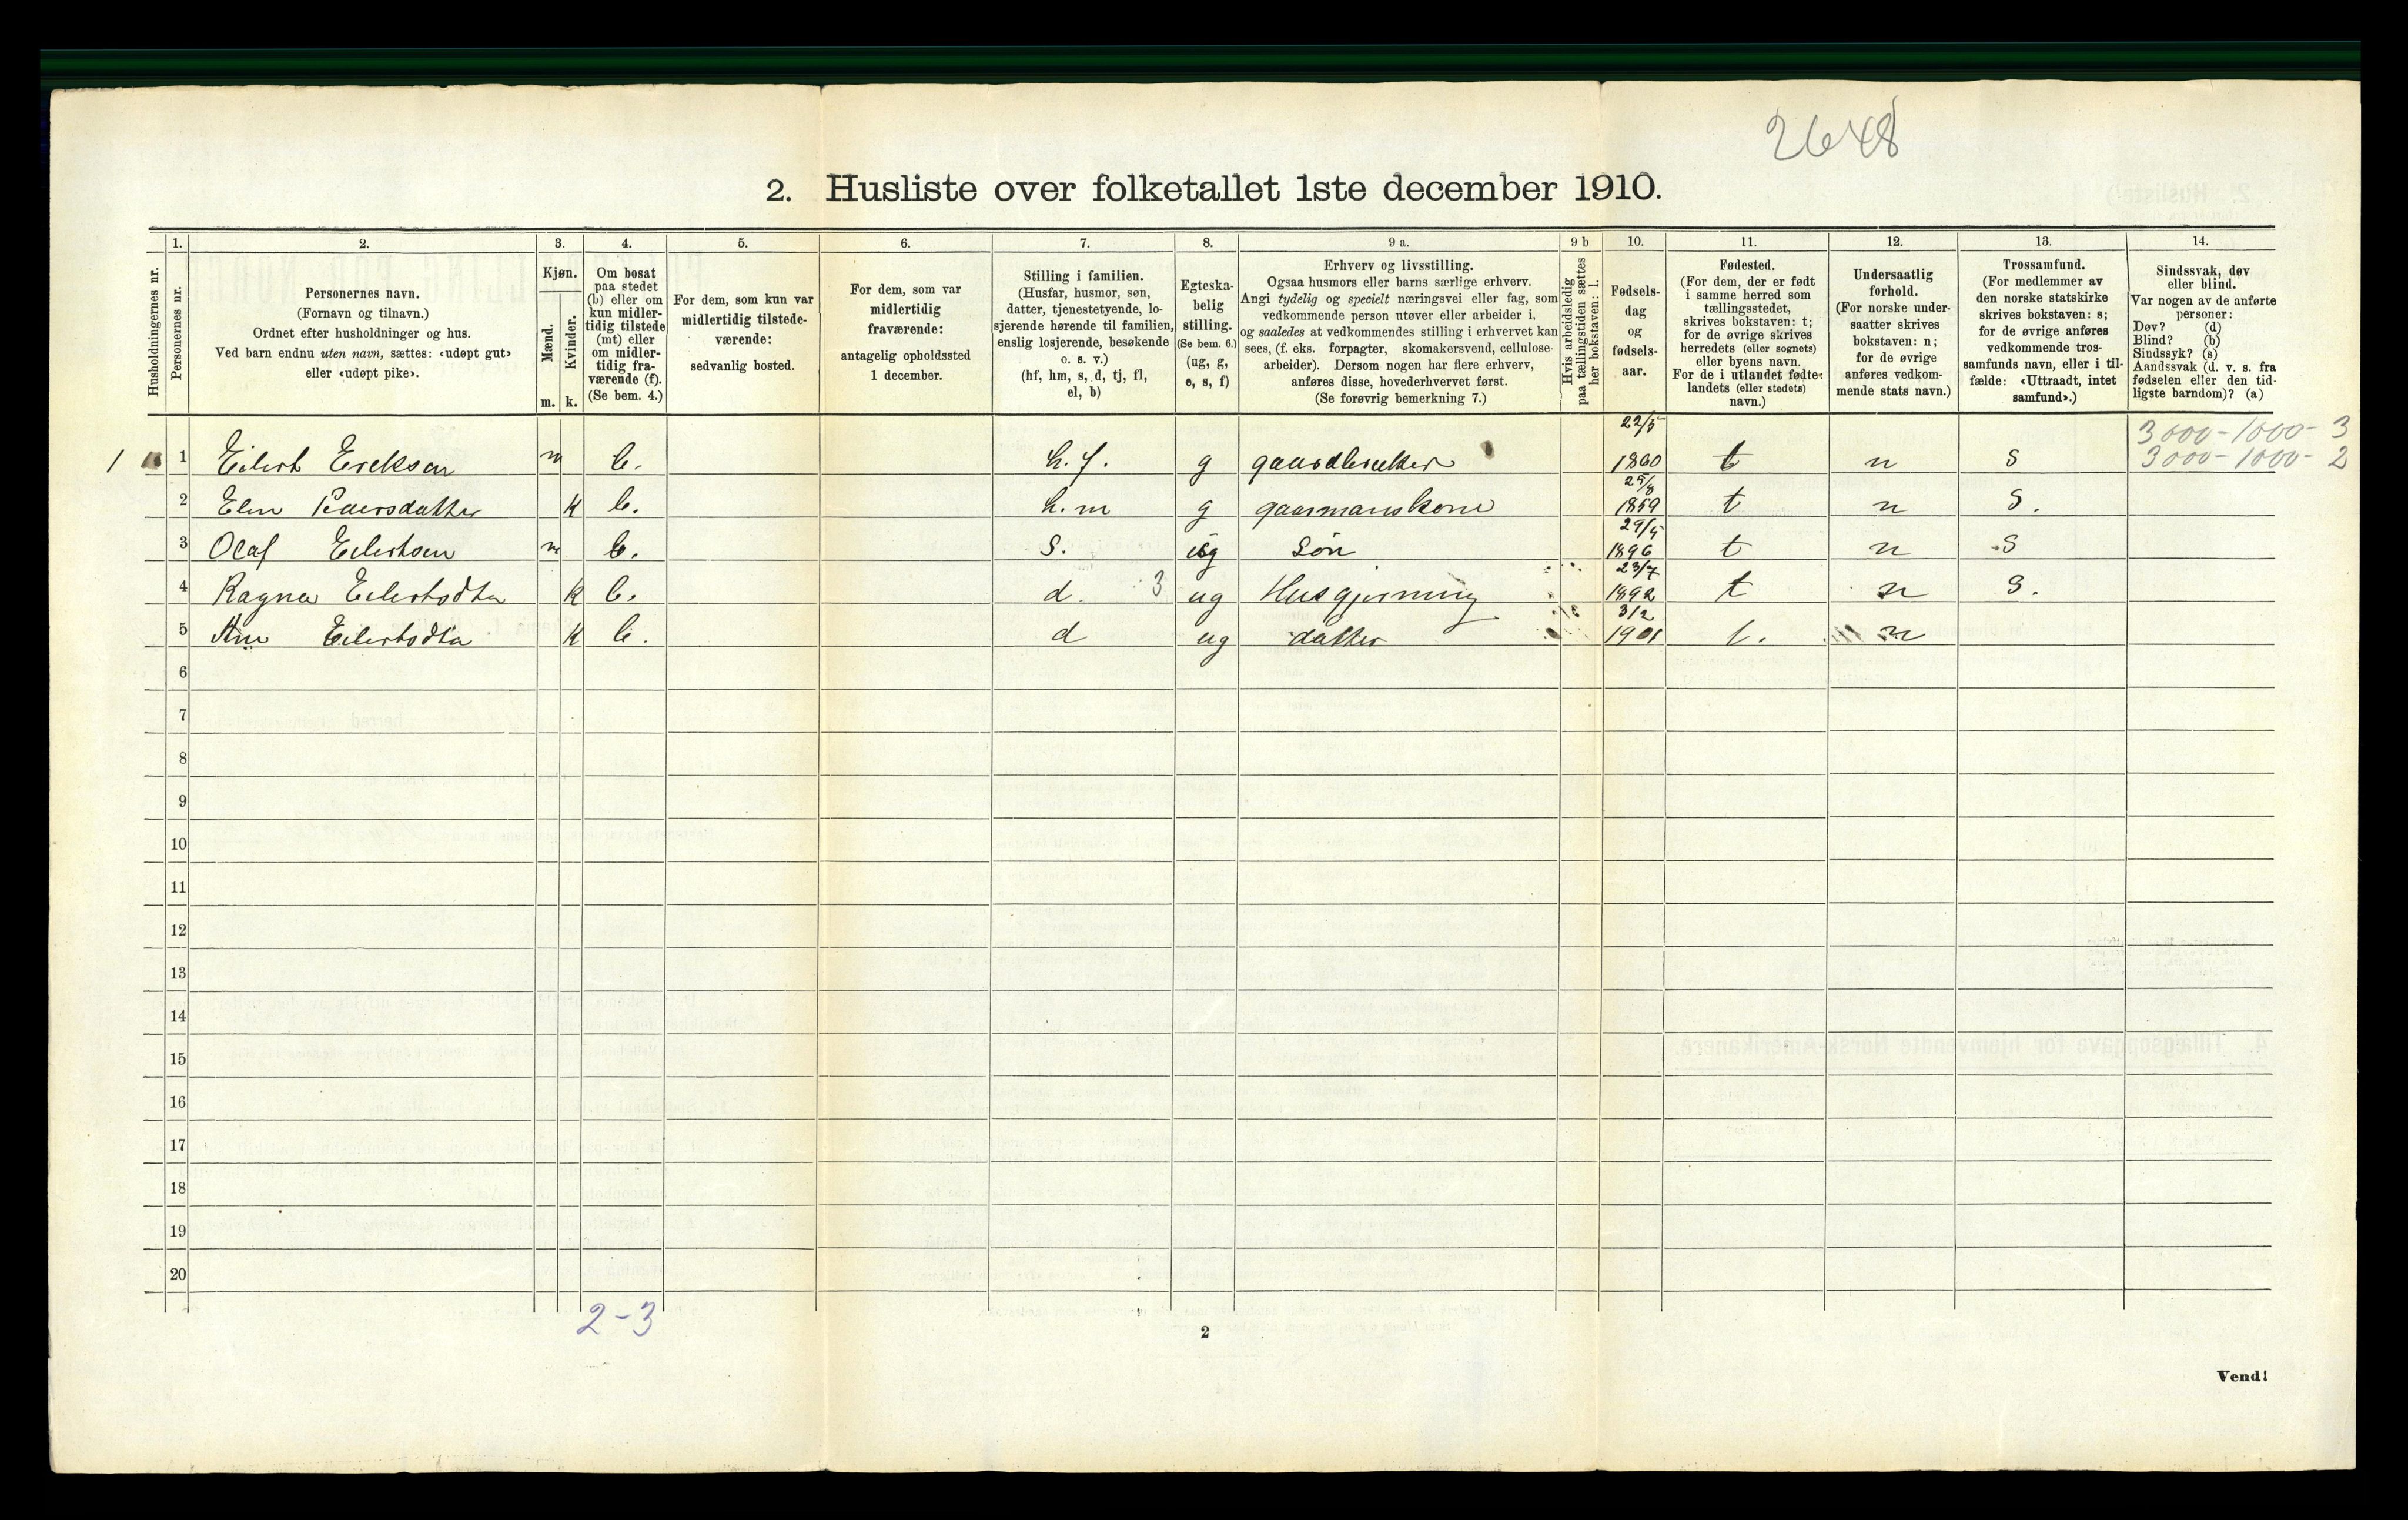 2648
2. Husliste over folketallet 1ste december 1910.
1. 2. 3. 4. 5. 6. 7. 8. 9 a. 9 b 10. 11. 12. 13. 14.
Husholdningernes nr.
Personernes nr.
Personernes navn.
(Fornavn og tilnavn.)
Ordnet efter husholdninger og hus.
Ved barn endnu uten navn, sættes: «udøpt gut»
eller «udøpt pike».
Kjøn.
Mænd.
Kvinder.
m. k.
Om bosat
paa stedet
(b) eller om
kun midler-
tidig tilstede
(mt) eller
om midler-
tidig fra-
værende (f).
(Se bem. 4.)
For dem, som kun var
midlertidig tilstede-
værende:
sedvanlig bosted.
For dem, som var
midlertidig
fraværende:
antagelig opholdssted
1 december.
Stilling i familien.
(Husfar, husmor, søn,
datter, tjenestetyende, lo-
sjerende hørende til familien,
enslig losjerende, besøkende
o. s. v.)
(hf, hm, s, d, tj, fl,
el, b)
Egteska-
belig
stilling.
(Se bem. 6.)
(ug, g,
e, s, f)
Erhverv og livsstilling.
Ogsaa husmors eller barns særlige erhverv.
Angi tydelig og specielt næringsvei eller fag, som
vedkommende person utøver eller arbeider i,
og saaledes at vedkommendes stilling i erhvervet kan
sees, (f. eks. forpagter, skomakersvend, cellulose-
arbeider). Dersom nogen har flere erhverv,
anføres disse, hovederhvervet først.
(Se forøvrig bemerkning 7.)
Hvis arbeidsledig
paa tællingstiden sættes
her bokstaven: l.
Fødsels-
dag
og
fødsels-
aar.
Fødested.
(For dem, der er født
i samme herred som
tællingsstedet,
skrives bokstaven: t;
for de øvrige skrives
herredets (eller sognets)
eller byens navn.
For de i utlandet fødte:
landets (eller stedets)
navn.)
Undersaatlig
forhold.
(For norske under-
saatter skrives
bokstaven: n;
for de øvrige
anføres vedkom-
mende stats navn.)
Trossamfund.
(For medlemmer av
den norske statskirke
skrives bokstaven: s;
for de øvrige anføres
vedkommende tros-
samfunds navn, eller i til-
fælde: «Uttraadt, intet
samfund».)
Sindssvak, døv
eller blind.
Var nogen av de anførte
personer:
Døv? (d)
Blind? (b)
Sindssyk? (s)
Aandssvak (d. v. s. fra
fødselen eller den tid-
ligste barndom)? (a)
22/5 3000-1000-3
1 1 Eilert Ereksen m b. h.f. g gaardbruker 1860 t n s 3000-1000-2
2 Elen Pedersdatter k b. h.m g gaarmanskone 1859 t n s.
29/5
3 Olaf Eilertsen m b. s. ug søn 1896 t n s
23/7
4 Ragna Eilertsdtr k b. d. 3 ug Husgjerning 1892 t n s.
3/2
5 Eilertsdtr k b. d ug datter 1901 t. n
6
7
8
9
10
11
12
13
14
15
16
17
18
19
20
2-3
2
Vend!